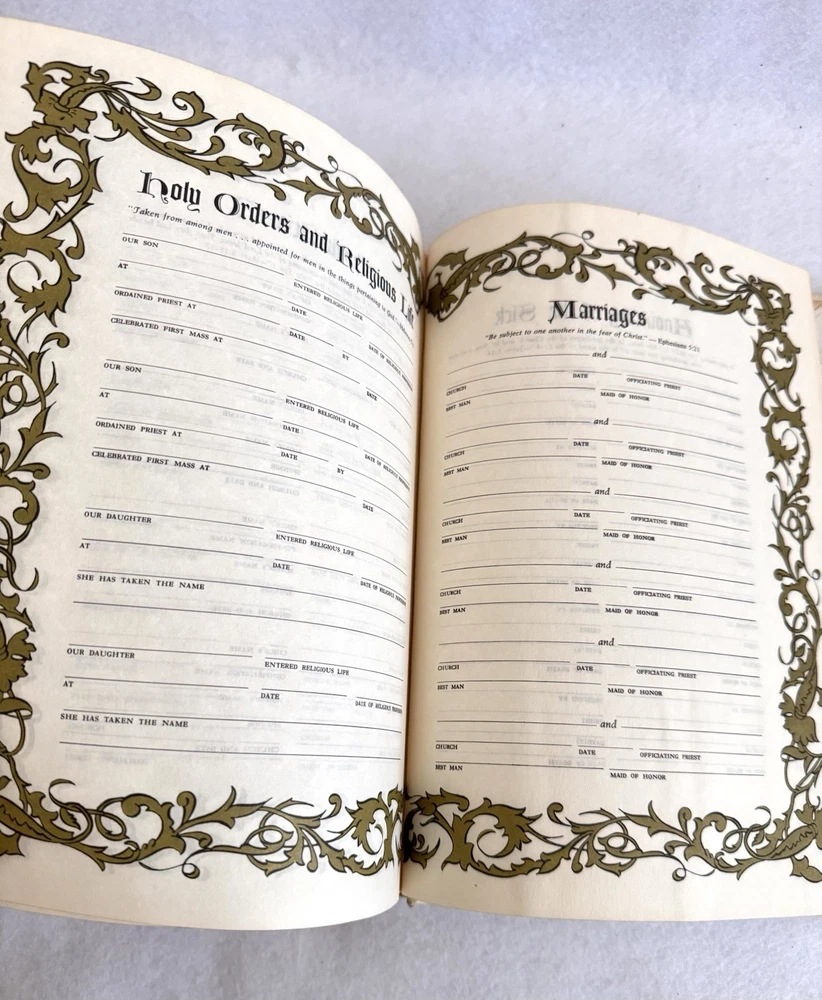 Holy Orders and Religious Life
"Taken from among men . . . appointed for men in the things pertaining to God."
OUR SON
ENTERED RELIGIOUS LIFE
AT
DATE
DATE OF RELIGIOUS PROFESSION
ORDAINED PRIEST AT
DATE
BY
CELEBRATED FIRST MASS AT
DATE
OUR SON
ENTERED RELIGIOUS LIFE
AT
DATE
DATE OF RELIGIOUS PROFESSION
ORDAINED PRIEST AT
DATE
BY
CELEBRATED FIRST MASS AT
DATE
OUR DAUGHTER
ENTERED RELIGIOUS LIFE
AT
DATE
DATE OF RELIGIOUS PROFESSION
SHE HAS TAKEN THE NAME
OUR DAUGHTER
ENTERED RELIGIOUS LIFE
AT
DATE
DATE OF RELIGIOUS PROFESSION
SHE HAS TAKEN THE NAME
Marriages
"Be subject to one another in the fear of Christ." — Ephesians 5:21
and
CHURCH DATE OFFICIATING PRIEST
BEST MAN MAID OF HONOR
and
CHURCH DATE OFFICIATING PRIEST
BEST MAN MAID OF HONOR
and
CHURCH DATE OFFICIATING PRIEST
BEST MAN MAID OF HONOR
and
CHURCH DATE OFFICIATING PRIEST
BEST MAN MAID OF HONOR
and
CHURCH DATE OFFICIATING PRIEST
BEST MAN MAID OF HONOR
and
CHURCH DATE OFFICIATING PRIEST
BEST MAN MAID OF HONOR